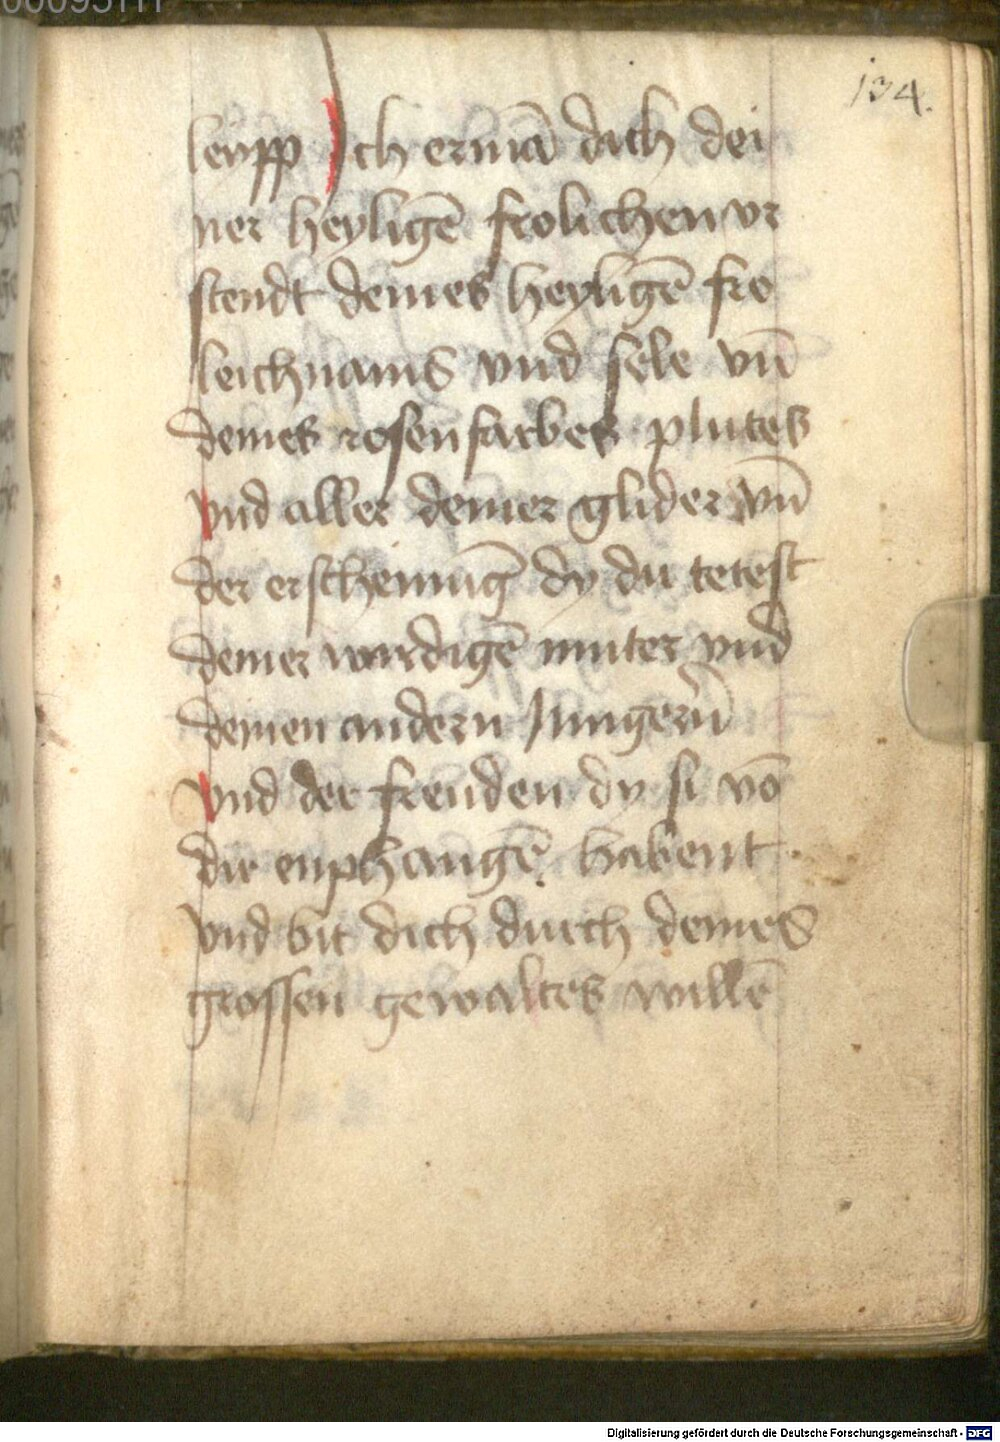 134.
leypp Ich ermā dich dei
ner heyligē frolichen vr
stendt deines heyligē fro
leichnams vnd sele vn̄
deines rosenfarbes plutes
vnd aller deiner glider vn̄
der erscheinūg dy du tetest
deiner wirdigē muter vnd
deinen andern Jungern̄
vnd der freuden dy si vō
dir enphangē habent
vnd bit dich durch deines
grossen gewaltes willē
Digitalisierung gefördert durch die Deutsche Forschungsgemeinschaft - DFG